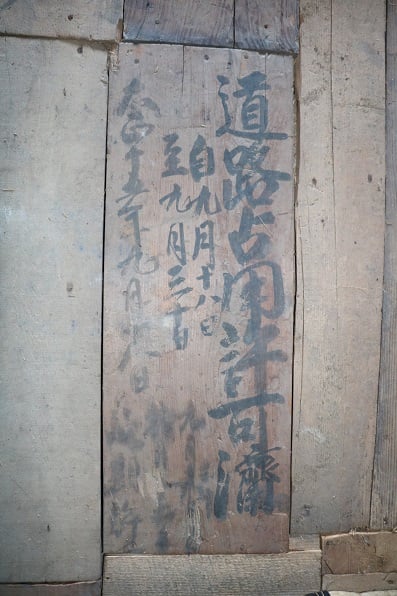 道路占用許可濟
自九月十八日
至九月三十日
大正十五年九月十八日